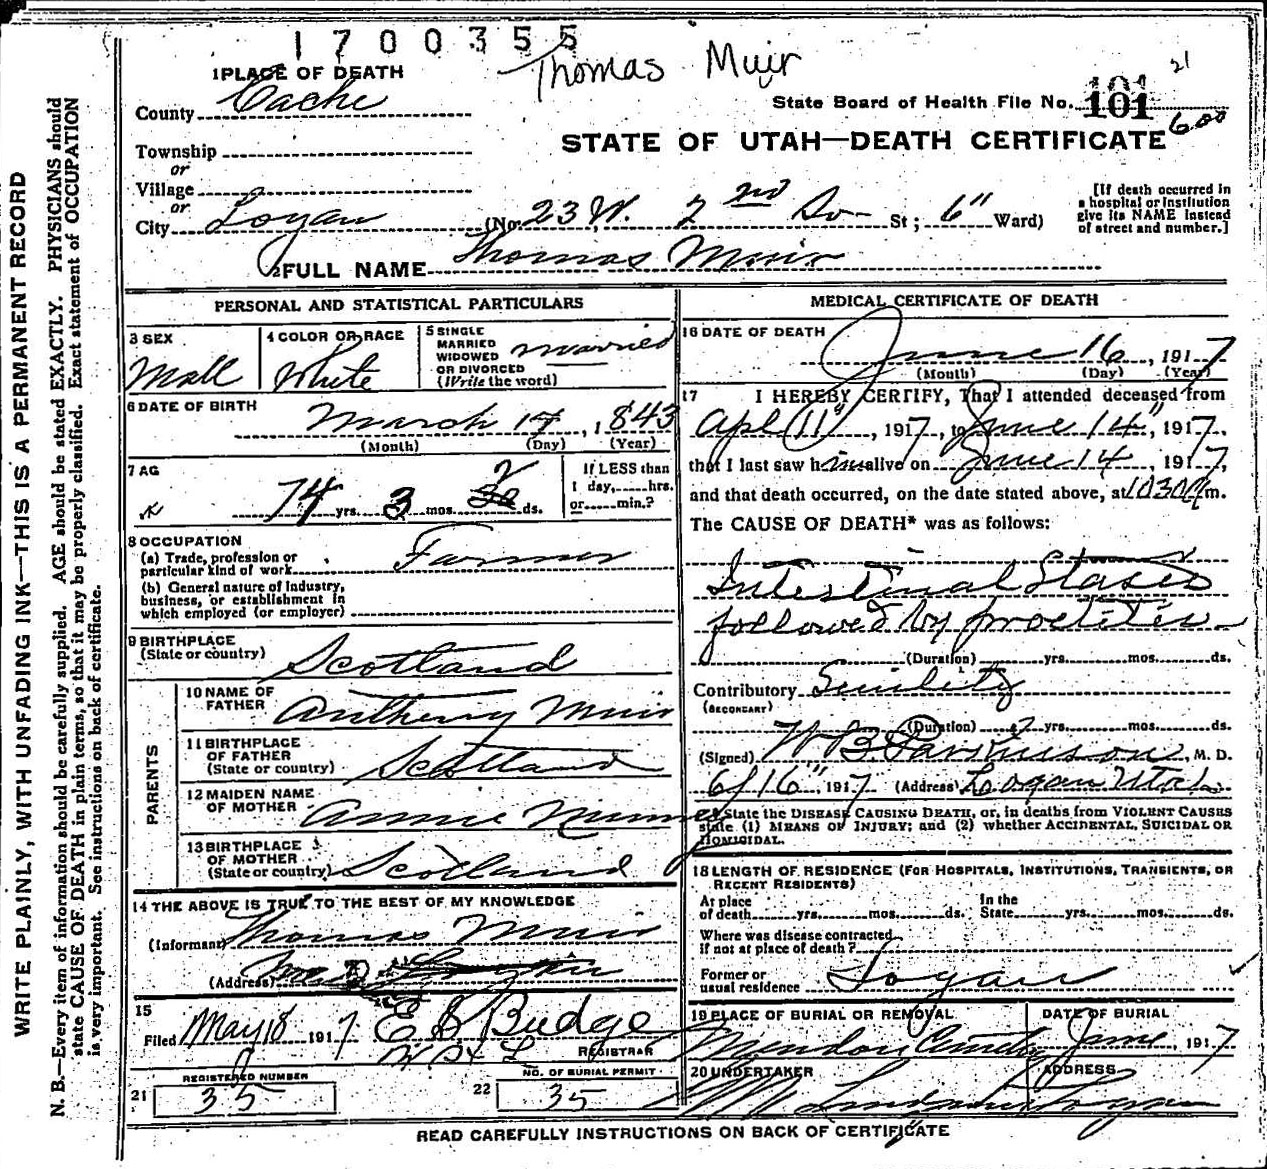 1700355
Thomas Muir
21
1 PLACE OF DEATH
County Cache
State Board of Health File No. 101
101
600
STATE OF UTAH—DEATH CERTIFICATE
Township
or
Village
or
City Logan (No. 23 W. 2nd So- St; 6" Ward)
[If death occurred in a hospital or institution give its NAME instead of street and number.]
2 FULL NAME Thomas Muir
WRITE PLAINLY, WITH UNFADING INK—THIS IS A PERMANENT RECORD
N. B.—Every item of information should be carefully supplied. AGE should be stated EXACTLY. PHYSICIANS should
state CAUSE OF DEATH in plain terms, so that it may be properly classified. Exact statement of OCCUPATION
is very important. See instructions on back of certificate.
PERSONAL AND STATISTICAL PARTICULARS
3 SEX
Mall
4 COLOR OR RACE
White
5 SINGLE
MARRIED
WIDOWED
OR DIVORCED
(Write the word)
married
6 DATE OF BIRTH
March 14, 1843
(Month) (Day) (Year)
7 AG
74 yrs. 3 mos. 2 ds.
If LESS than
1 day, hrs.
or min.?
8 OCCUPATION
(a) Trade, profession or
particular kind of work Farmer
(b) General nature of industry,
business, or establishment in
which employed (or employer)
9 BIRTHPLACE
(State or country) Scotland
PARENTS
10 NAME OF
FATHER Anthony Muir
11 BIRTHPLACE
OF FATHER
(State or country) Scotland
12 MAIDEN NAME
OF MOTHER Annie
13 BIRTHPLACE
OF MOTHER
(State or country) Scotland
14 THE ABOVE IS TRUE TO THE BEST OF MY KNOWLEDGE
(Informant) Thomas Muir
(Address)
15
Filed May 18 1917 E S Budge
REGISTRAR
REGISTERED NUMBER
21 35
NO. OF BURIAL PERMIT
22 35
MEDICAL CERTIFICATE OF DEATH
16 DATE OF DEATH
June 16, 1917
(Month) (Day) (Year)
17 I HEREBY CERTIFY, That I attended deceased from
Apl 11", 1917, to June 14", 1917,
that I last saw him alive on June 14, 1917,
and that death occurred, on the date stated above, at 1030 m.
The CAUSE OF DEATH* was as follows:
Intestinal Stases
followed by proctitis
(Duration) yrs. mos. ds.
Contributory Senility
(SECONDARY)
(Duration) yrs. mos. ds.
(Signed) W B Parkinson, M. D.
6/16", 1917 (Address) Logan Utah
* State the DISEASE CAUSING DEATH, or, in deaths from VIOLENT CAUSES
state (1) MEANS OF INJURY; and (2) whether ACCIDENTAL, SUICIDAL OR
HOMICIDAL.
18 LENGTH OF RESIDENCE (FOR HOSPITALS, INSTITUTIONS, TRANSIENTS, OR
RECENT RESIDENTS)
At place
of death yrs. mos. ds. In the
State yrs. mos. ds.
Where was disease contracted
if not at place of death?
Former or
usual residence Logan
19 PLACE OF BURIAL OR REMOVAL
Mendon
DATE OF BURIAL
June, 1917
20 UNDERTAKER
ADDRESS
Logan
READ CAREFULLY INSTRUCTIONS ON BACK OF CERTIFICATE